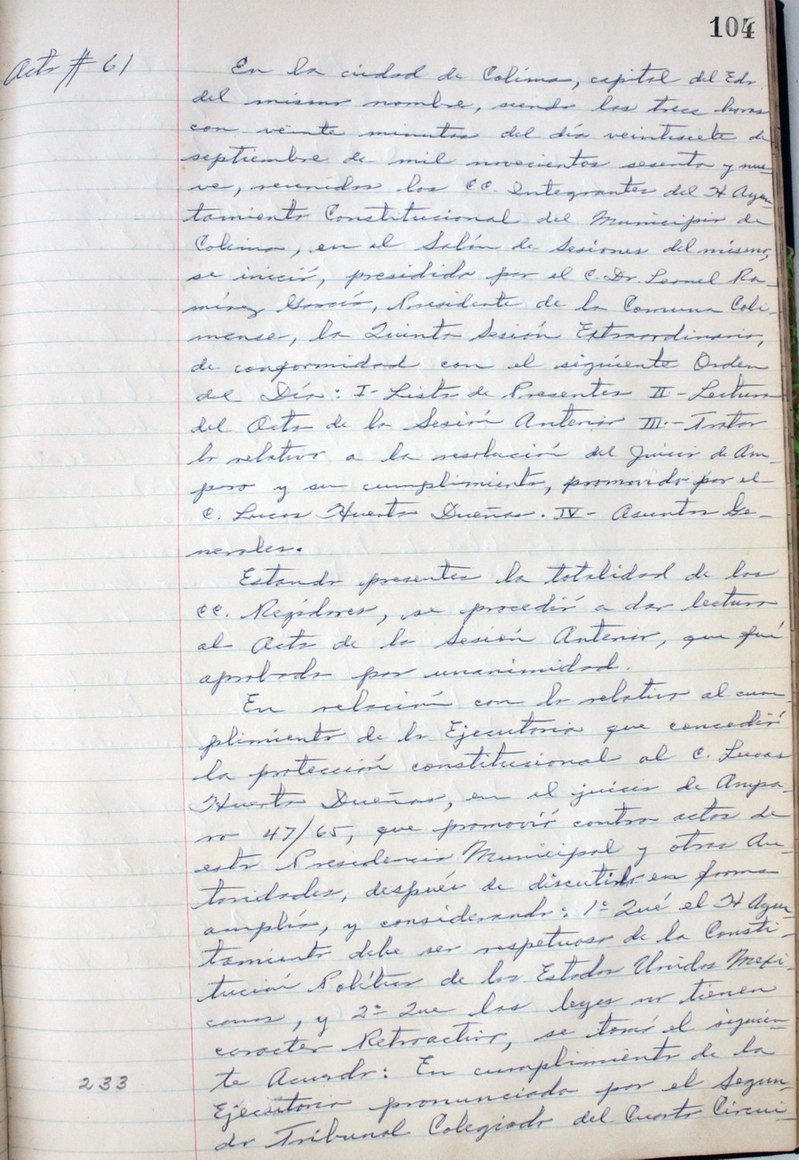 104
Acta # 61
En la ciudad de Colima, capital del Edo.
del mismo nombre, siendo las trece horas
con veinte minutos del día veintisiete de
septiembre de mil novecientos sesenta y nue-
ve, reunidos los CC. Integrantes del H Ayun-
tamiento Constitucional del Municipio de
Colima, en el Salón de Sesiones del mismo,
se inició, presidida por el C. Dr. Leonel Ra-
mírez García, Presidente de la Comuna Coli-
mense, la Quinta Sesión Extraordinaria,
de conformidad con el siguiente Orden
del Día: I- Lista de Presentes II- Lectura
del Acta de la Sesión Anterior III.- Tratar
lo relativo a la resolución del Juicio de Am-
paro y su cumplimiento, promovido por el
C. Lucas Huerta Dueñas. IV- Asuntos Ge-
nerales.
Estando presentes la totalidad de los
CC. Regidores, se procedió a dar lectura
al Acta de la Sesión Anterior, que fué
aprobada por unanimidad.
En relación con lo relativo al cum-
plimiento de la Ejecutoria que concedió
la protección constitucional al C. Lucas
Huerta Dueñas, en el juicio de Ampa-
ro 47/65, que promovió contra actos de
esta Presidencia Municipal y otras Au-
toridades, después de discutirlo en forma
amplia, y considerando: 1º Qué el H Ayun-
tamiento debe ser respetuoso de la Consti-
tución Política de los Estados Unidos Mexi-
canos, y 2º Que las leyes no tienen
caracter Retroactivo, se tomó el siguien-
te Acuerdo: En cumplimiento de la
233
Ejecutoria pronunciada por el Segun-
do Tribunal Colegiado del Cuarto Circui-